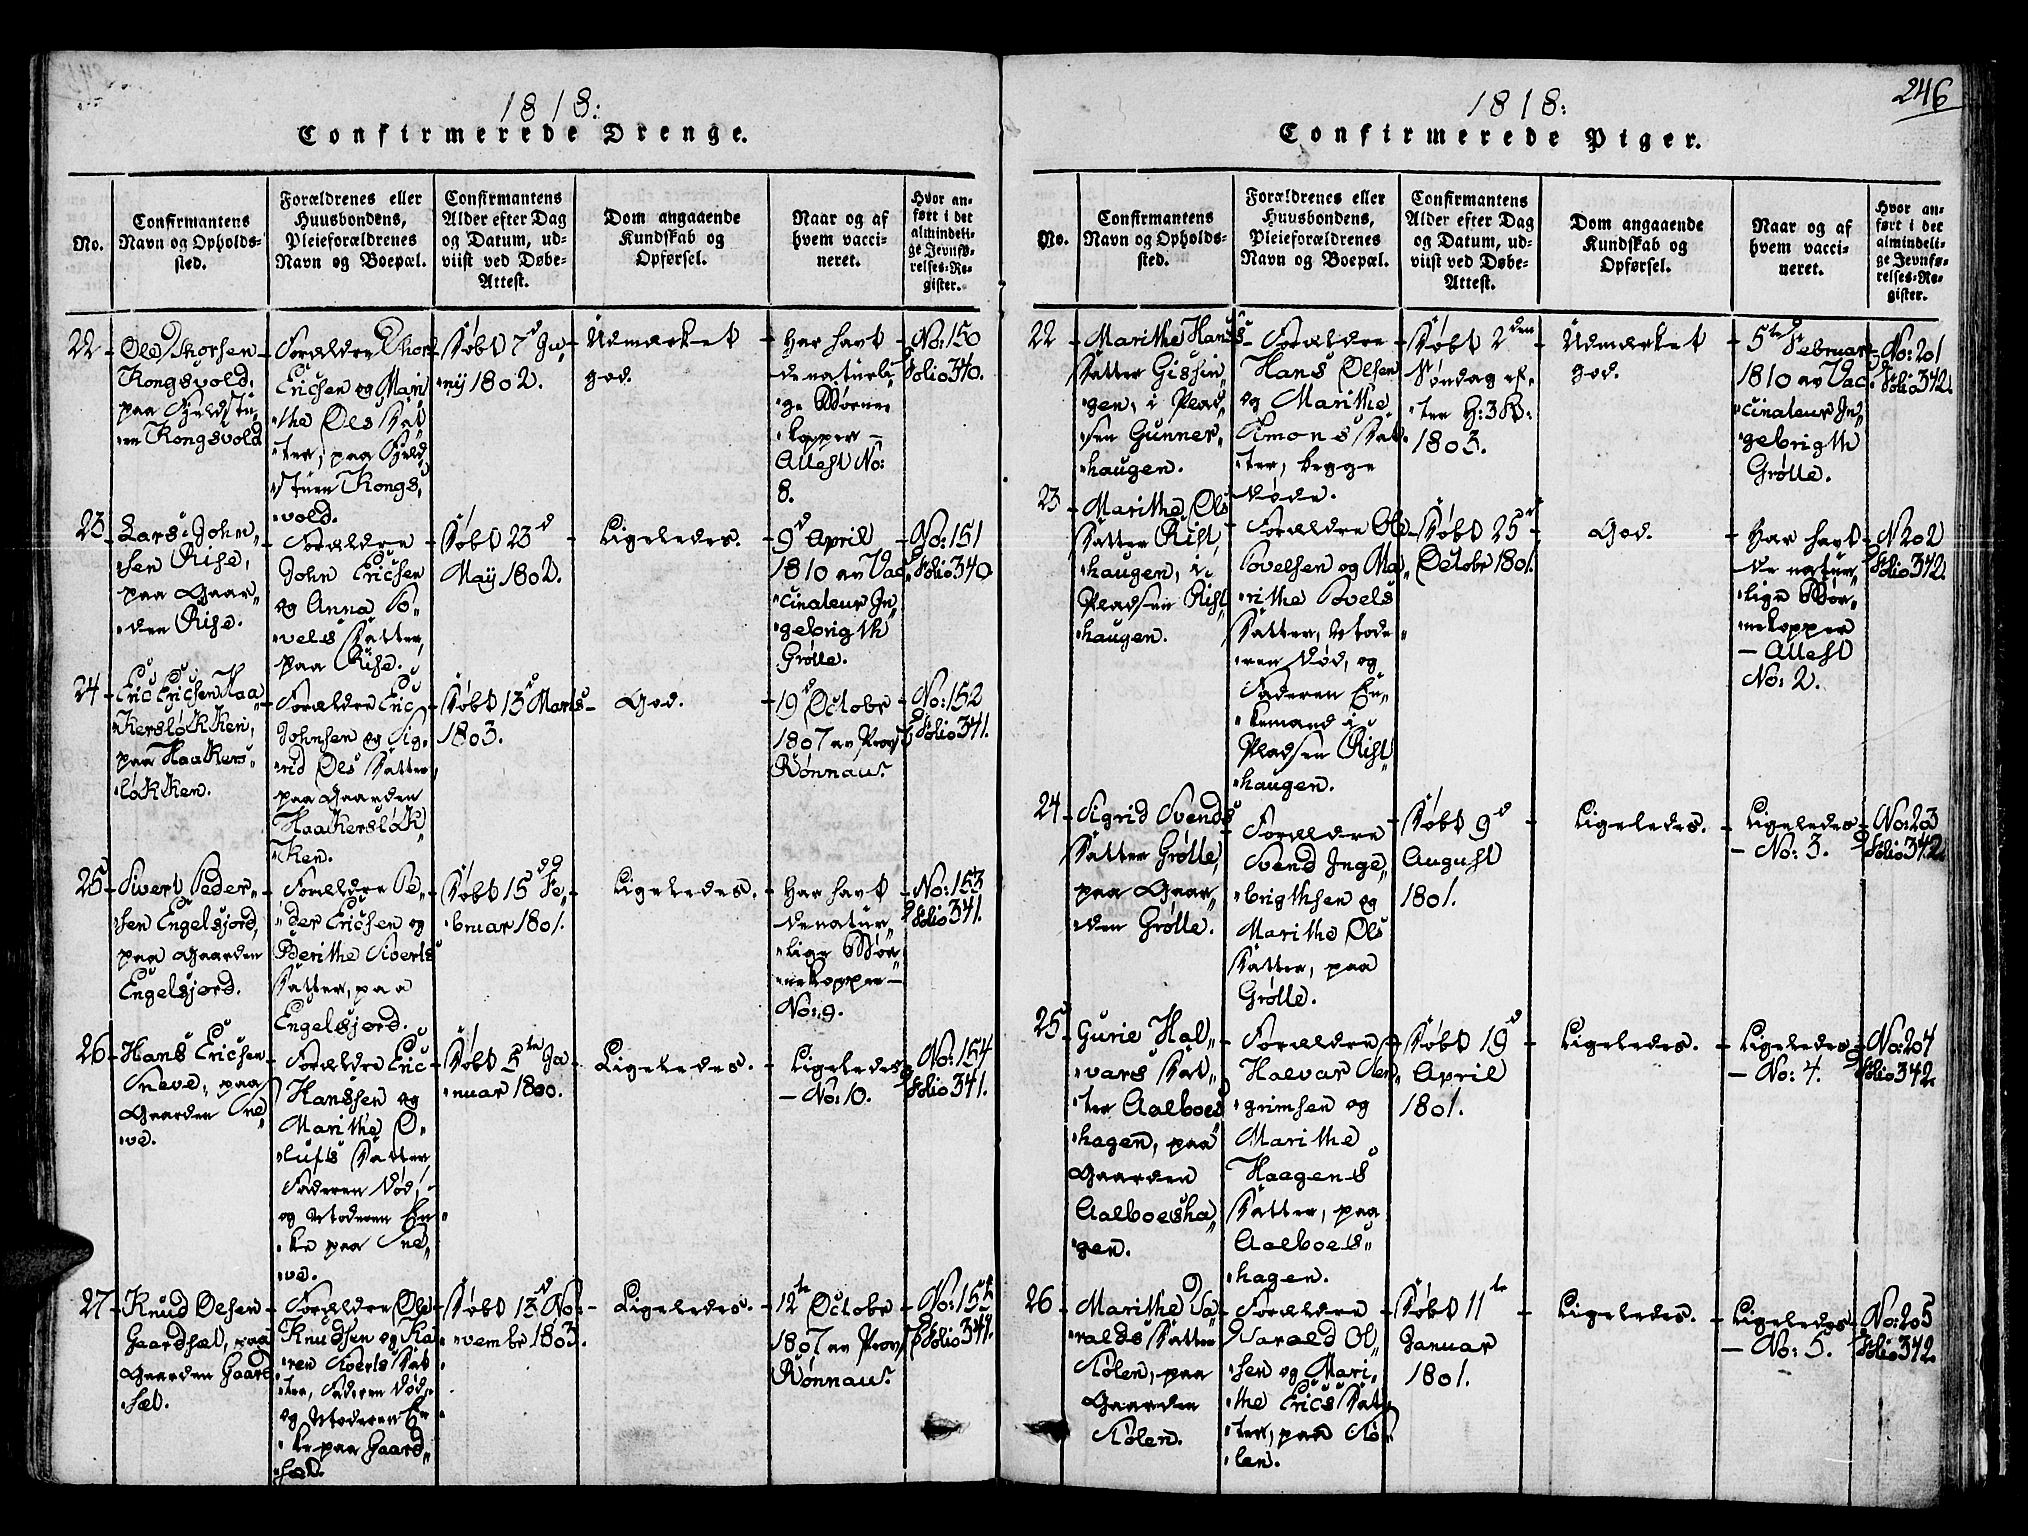 246
1818:
Confirmerede Drenge.
No.
Confirmantens
Navn og Opholds-
sted.
Forældrenes eller
Huusbondens,
Pleieforældrenes
Navn og Boepæl.
Confirmantens
Alder efter Dag
og Datum, ud-
viist ved Døbe-
Attest.
Dom angaaende
Kundskab og
Opførsel.
Naar og af
hvem vacci-
neret.
Hvor an-
ført i det
almindeli-
ge Jevnfø-
relses-Re-
gister.
22
Ole Thorsen
Kongsvold,
paa Fjeldstu-
en Kongsvold
Forældre Thor
Ericsen og Mari
the Ols Dat
ter, paa Fjeld
stuen Kongs
vold.
Døbt 7d Ju
nij 1802.
Udmærket
god.
Har havt
de naturli
ge Børne
kopper –
Attest No:
8.
No: 150
Folio 340.
23
Lars John
sen Rise,
paa Gaar
den Rise.
Forældre
John Ericsen
og Anna Po
vels Datter,
paa Rise.
Døbt 23d
Maij 1802.
Ligeledes.
9d April
1810 av Vac
cinateur In
gebrigth
Grølle.
No: 151
Folio 340
24
Eric Ericsen Haa
kersløkken,
paa Haakers
løkken.
Forældre Eric
Johnsen og Sig
rid Ols Datter,
paa Gaarden
Haakersløk
ken.
Døbt 13d Marts
1803.
God.
19d Octobr
1807 av Provst
Rønnau.
No: 152
Folio 341.
25
Sivert Peder
sen Engelsjord,
paa Gaarden
Engelsjord.
Forældre Pe
der Ericsen og
Berithe Siverts
Datter, paa
Engelsjord.
Døbt 15d Fe
bruar 1801.
Ligeledes.
Har havt
de natur
lige Bør
nekopper –
No: 9.
No: 153
Folio 341.
26
Hans Ericsen
Sneve, paa
Gaarden Sne
ve.
Forældre Eric
Hanssen og
Marithe O
lufs Datter,
Faderen død,
og Moderen En
ke paa Sne
ve.
Døbt 5te Ja
nuar 1800.
Ligeledes.
Ligeledes
– No: 10.
No: 154
Folio 341.
27
Knud Olsen
Gaardsæt, paa
Gaarden Gaard
sæt.
Forældre Ole
Knudsen og Ka
ren Siverts Dat
ter, Faderen død,
og Moderen En
ke paa Gaard
sæt.
Døbt 13d No
vembr 1803.
Ligeledes.
12te Octobr
1807 av Provst
Rønnau.
No: 155
Folio 341.
1818:
Confirmerede Piger.
No.
Confirmantens
Navn og Opholds-
sted.
Forældrenes eller
Huusbondens,
Pleieforældrenes
Navn og Boepæl.
Confirmantens
Alder efter Dag
og Datum, ud-
viist ved Døbe-
Attest.
Dom angaaende
Kundskab og
Opførsel.
Naar og af
hvem vacci-
neret.
Hvor an-
ført i det
almindeli-
ge Jevnfø-
relses-Re-
gister.
22
Marithe Hans
Datter Gissin
gen, i Plad
sen Gunner
haugen.
Forældre
Hans Olsen
og Marithe
Simons Dat
ter, begge
døde.
Døbt 2den
Søndag ef
ter H: 3 K:
1803.
Udmærket
god.
5te Februar
1810 av Vac
cinateur In
gebrigth
Grølle.
No: 201
Folio 342.
23
Marithe Ols
Datter Rist
haugen, i
Pladsen Rist
haugen.
Forældre Ole
Povelsen og Ma
rithe Povels
Datter, Mode
ren død, og
Faderen En
kemand i
Pladsen Rist
haugen.
Døbt 25d
Octobr 1801.
God.
Har havt
de natur
lige Bør
nekopper
– Attest
No: 2.
N 202
Folio 342.
24
Sigrid Svends
Datter Grølle,
paa Gaar
den Grølle.
Forældre
Svend Inge
brigthsen og
Marithe Ols
Datter, paa
Grølle.
Døbt 9d
August
1801.
Ligeledes.
Ligeledes
– No: 3.
No: 203
Folio 342.
25
Gurie Hal
vars Dat
ter Aalboes
hagen, paa
Gaarden
Aalboesha
gen.
Forældre
Halvar
grimsen og
Marithe
Haagens
Datter, paa
Aalboes
hagen.
Døbt 19d
April
1801.
Ligeledes.
Ligeledes
– No: 4.
No: 204
Folio 342.
26
Marithe Ha
ralds Datter
Stølen, paa
Gaarden
Stølen.
Forældre
Harald Ol
sen og Mari
the Erics Dat
ter, paa Stø
len.
Døbt 11te
Januar
1801.
Ligeledes.
Ligeledes
– No: 5.
No: 205
Folio 342.